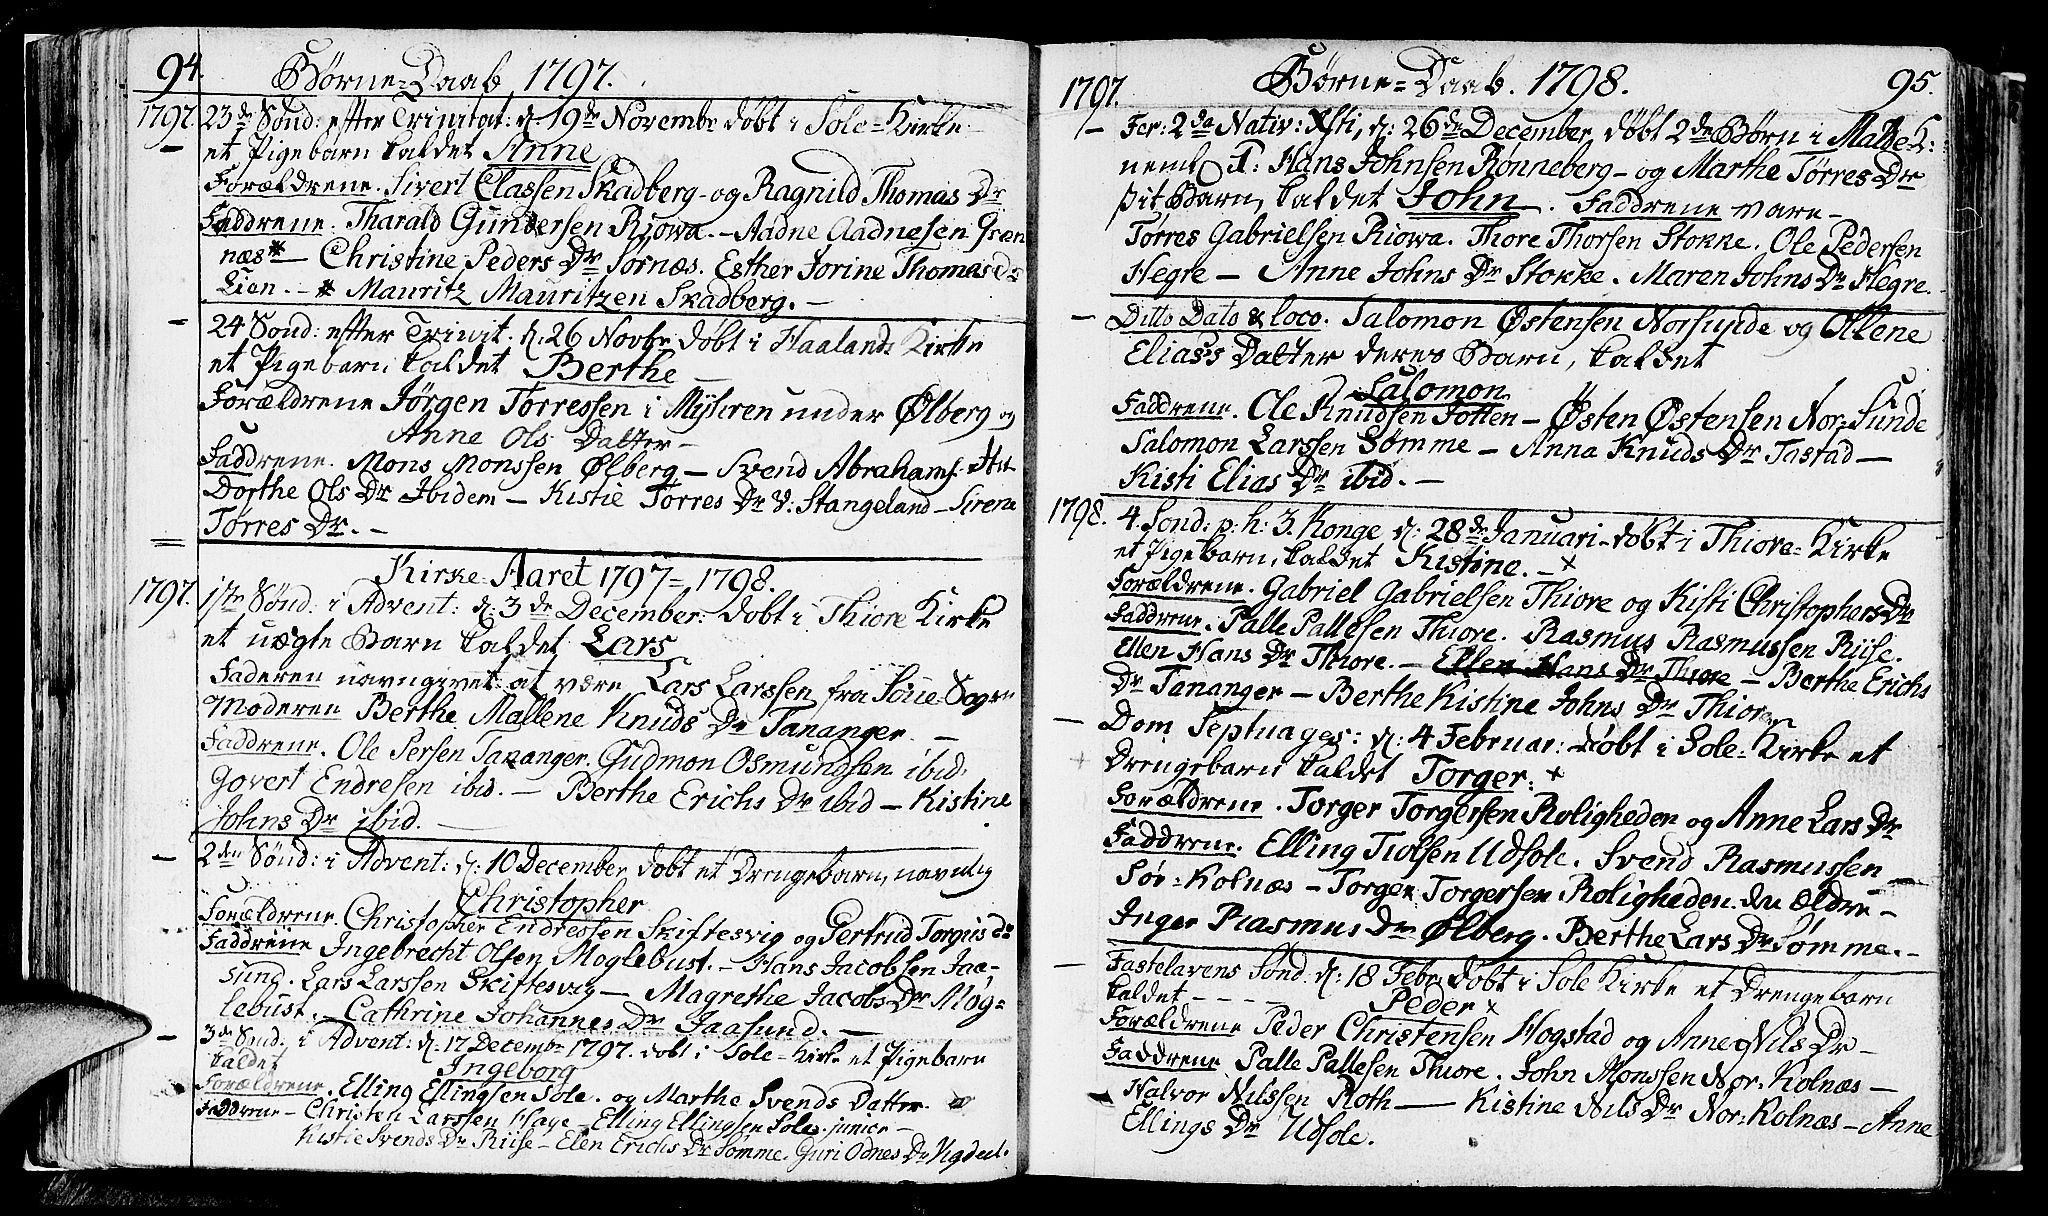 94. Børne-Daab 1797.
1797. 23de Sønd: efter Trinitat: d. 19de Novembr døbt i Sole-Kirke
et Pigebarn kaldet Anne
Forældrene. Sivert Classen Skadberg - og Ragnild Thomas Dr
Faddrene: Tharald Gundersen Riowa. - Aadne Aadnesen Gisen
næs * - Christine Peders Dr Sornæs. Esther Jorine Thomas Dr
Lien. - * Mauritz Mauritzen Skadberg. -
24 Sønd: efter Trinit. d. 26 Novbr døbt i Haalands Kirke
et Pigebarn kaldet Berthe
Forældrene Jørgen Torressen i Myhren under Ølberg og
Anne Ols Datter -
Faddrene. Mons Monssen Ølberg - Svend Abrahams.
Dorthe Ols Dr Ibidem - Kistie Torres Dr V: Stangeland - Sirene
Tørres Dr. -
Kirke-Aaret 1797 = 1798.
1797. 1ste Sønd: i Advent: d: 3de December: døbt i Thiore Kirke
et uægte Barn kaldet Lars
Faderen navngivet at være Lars Larssen fra Soue-Sogn
Moderen Berthe Mallene Knuds Dr Tananger. -
Faddrene. Ole Persen Tananger. Gudmon Osmundsen ibid.
Govert Endresen ibid. - Berthe Erichs Dr ibid - Kistine
Johns Dr ibid.
2den Sønd: i Advent: d: 10 December døbt et Drengebarn, navnlig
Christopher
Forældrene. Christopher Endressen Skiftesvig og Gertrud Torgiis Dr
Faddrene Ingebrecht Olsen Moglebust. - Hans Jacobsen Jaa-
sund. Lars Larssen Skiftesvig - Magrethe Jacobs Dr Møg-
lebust. - Cathrine Johannes Dr Jaasund. -
3de Sønd. i Advent: d: 17 Decembr 1797. døbt i Sole-Kirke et Pigebarn
kaldet Ingeborg
Forældrene. Elling Ellingsen Sole. og Marthe Svends Datter.
Faddrene - Christen Larssen Hage - Elling Ellingsen Sole. junior -
Kistie Svends Dr Riise - Elen Erichs Dr Sømme. Guri Odnes Dr Vigdeel.
1797. Børne-Daab. 1798. 95.
- Fer: 2da Nativ: Xsti, d: 26de December, døbt 2de Børn i Malde K:
neml. 1: Hans Johnsen Rønneberg - og Marthe Tørres Dr
sit Barn, kaldet John. Faddrene vare -
Tørres Gabrielsen Riowa. Thore Thorsen Stokke. Ole Pedersen
Hegre - Anne Johns Dr Stokke. Maren Johns Dr Hegre.
- Ditto Dato & loco. Salomon Østensen Norsunde og Ollene
Eliass Datter deres Barn, kaldet
Salomon
Faddrene. Ole Knudsen Jotten - Østen Østensen Nor-Sunde
Salomon Larssen Sømme - Anna Knuds Dr Tastad -
Kisti Elias Dr ibid. -
1798. 4. Sond: p: h: 3. Konge d: 28de Januari - døbt i Thiore-Kirke
et Pigebarn, kaldet Kistine. - x
Forældrene. Gabriel Gabrielsen Thiore og Kisti Christophers Dr
Faddrene. Palle Pallesen Thiore. Rasmus Rasmussen Riise.
Ellen Hans Dr Thiore. - Ellen Hans Dr Thiore - Berthe Erichs
Dr Tananger - Berthe Kistine Johns Dr Thiore
- Dom Septuages: d: 4 Februar: døbt i Sole-Kirke et
Drengebarn kaldet Torger: x
Forældrene. Torger Torgersen Roligheden og Anne Lars Dr
Faddrene. Elling Tiolsen Udsole. Svend Rasmussen -
Sør-Kolnæs - Torger Torgersen Roligheden den Ældre -
Inger Rasmus Dr Ølberg. Berthe Lars Dr Sømme. -
- Fastelavens Sønd. d: 18 Febr. døbt i Sole Kirke et Drengebarn
kaldet - - - - Peder x
Forældrene Peder Christensen Hogstad og Anne Nils Dr -
Faddrene Palle Pallesen Thiore. John Monssen Nor-Kolnæs -
Halvor Nilssen Roth - Kistine Nils Dr Nor-Kolnæs - Anne
Ellings Dr Udsole.